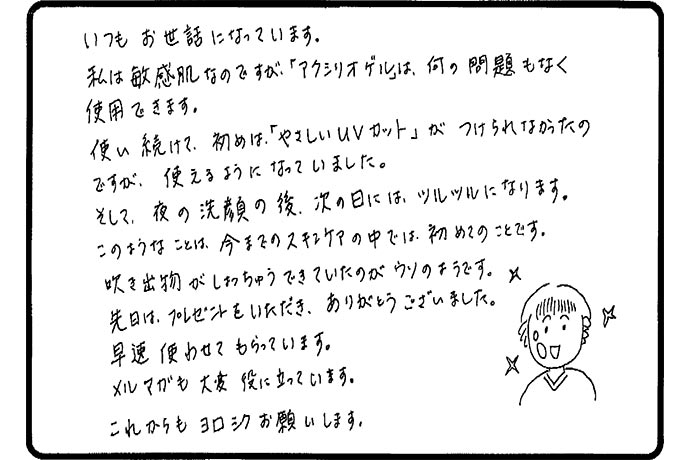 いつも お世話になっています。
私は敏感肌なのですが、「アクシリオゲル」は、何の問題もなく
使用できます。
使い続けて、初めは、「やさしいUVカット」が つけられなかったの
ですが、使えるようになっていました。
そして、夜の洗顔の後、次の日には、ツルツルになります。
このようなことは、今までのスキンケアの中では、初めてのことです。
吹き出物がしょっちゅうできていたのがウソのようです。
先日は、プレゼントをいただき、ありがとうございました。
早速 使わせてもらっています。
メルマガも 大変 役に立っています。
これからも ヨロシクお願いします。